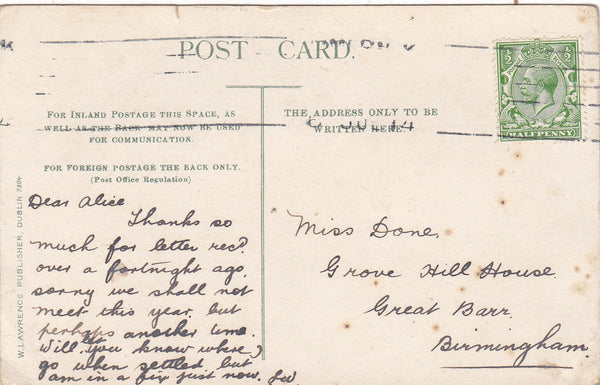 POST CARD.
½ ½
HALFPENNY
FOR INLAND POSTAGE THIS SPACE, AS
WELL AS THE BACK MAY NOW BE USED
FOR COMMUNICATION.
FOR FOREIGN POSTAGE THE BACK ONLY.
(Post Office Regulation)
THE ADDRESS ONLY TO BE
WRITTEN HERE.
JU 14
W. LAWRENCE PUBLISHER, DUBLIN
Dear Alice
Thanks so
much for letter recd.
over a fortnight ago,
sorry we shall not
meet this year, but
perhaps another time.
Will let you know where I
go when settled, but
am in a fix just now.
Miss Done,
Grove Hill House
Great Barr
Birmingham.